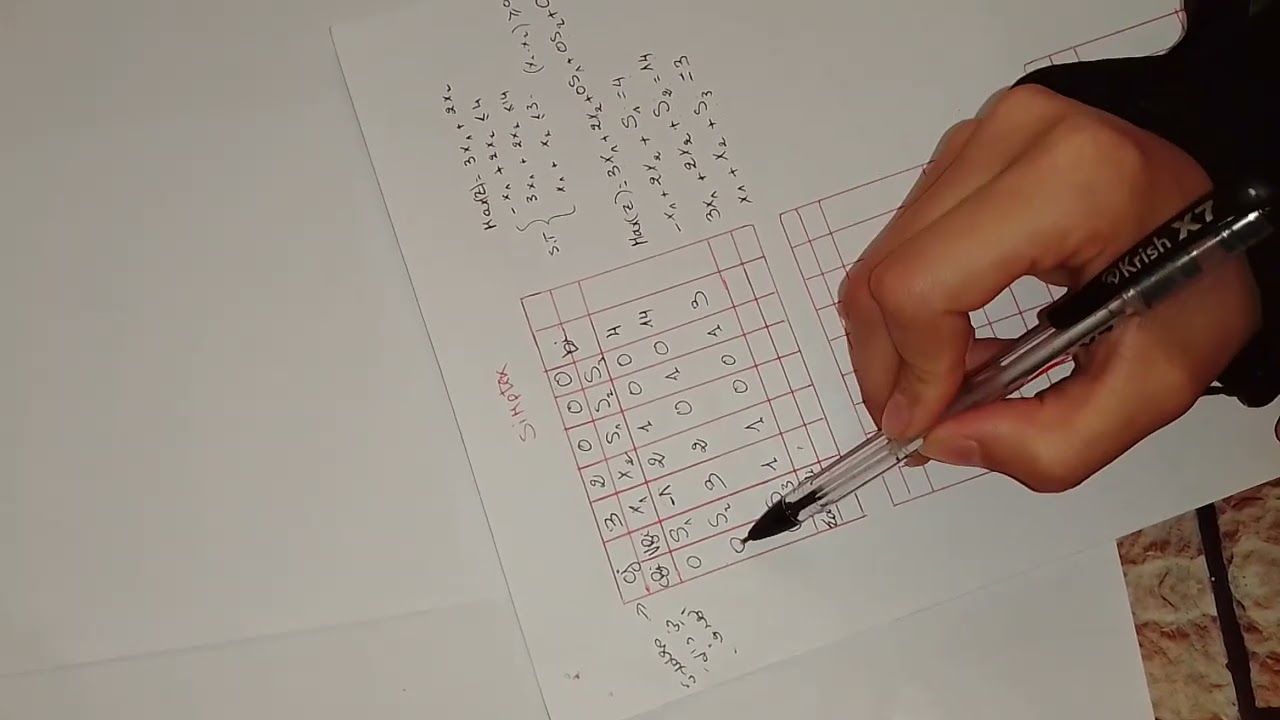 Max(Z)= 3x1 + 2x2
-x1 + 2x2 ≤ 4
3x1 + 2x2 ≤ 14
S.T
x1 + x2 ≤ 3. (x1.x2) ≥
Max(Z)= 3x1 + 2x2 + 0S1 + 0S2 +
-x1 + 2x2 + S1 = 4
3x1 + 2x2 + S2 = 14
x1 + x2 + S3 = 3
Simplex
Cj 3 2 0 0 0 bi
VBi x1 x2 S1 S2
0 S1 -1 2 1 0 0 4
0 S2 3 2 0 1 0 14
S3 1 1 0 0 1 3
Krish X7